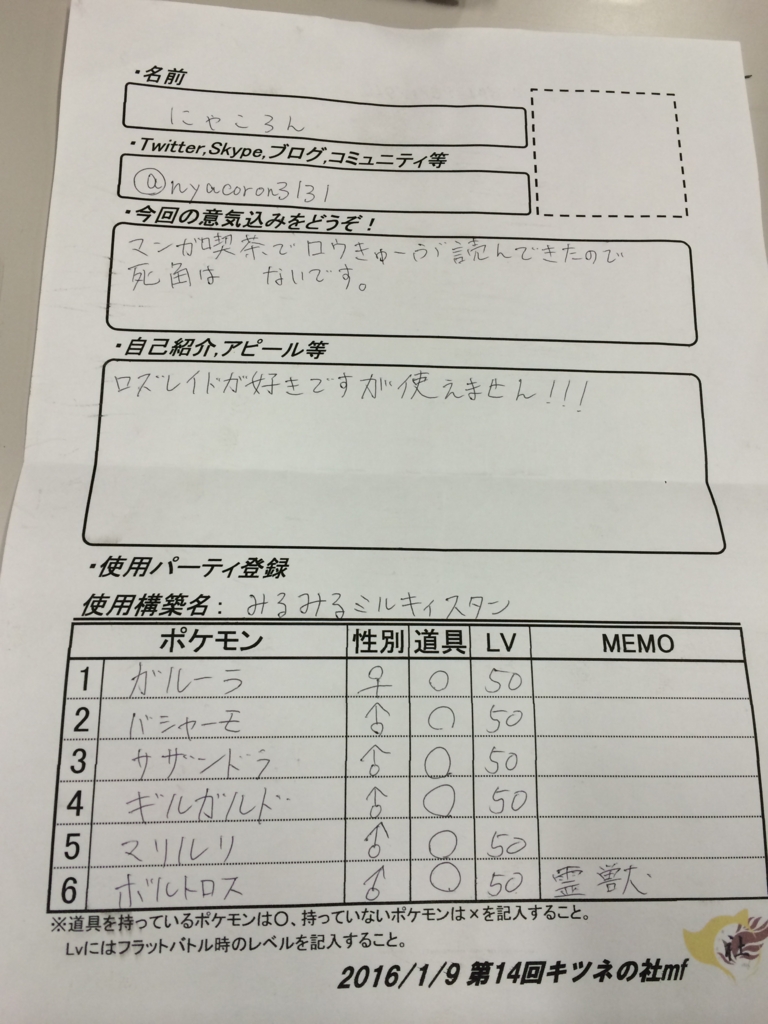 ・名前
にゃころん
・Twitter,Skype,ブログ,コミュニティ等
@nyacoron3131
・今回の意気込みをどうぞ！
マンガ喫茶でロウきゅーうが読んできたので
死角は ないです。
・自己紹介,アピール等
ロズレイドが好きですが使えません!!!
・使用パーティ登録
使用構築名： みるみるミルキィスタン
ポケモン 性別 道具 LV MEMO
1 ガルーラ ♀ ○ 50
2 バシャーモ ♂ ○ 50
3 サザンドラ ♂ ○ 50
4 ギルガルド ♂ ○ 50
5 マリルリ ♂ ○ 50
6 ボルトロス ♂ ○ 50 霊獣
※道具を持っているポケモンは〇、持っていないポケモンは×を記入すること。
Lvにはフラットバトル時のレベルを記入すること。
2016/1/9 第14回キツネの社mf